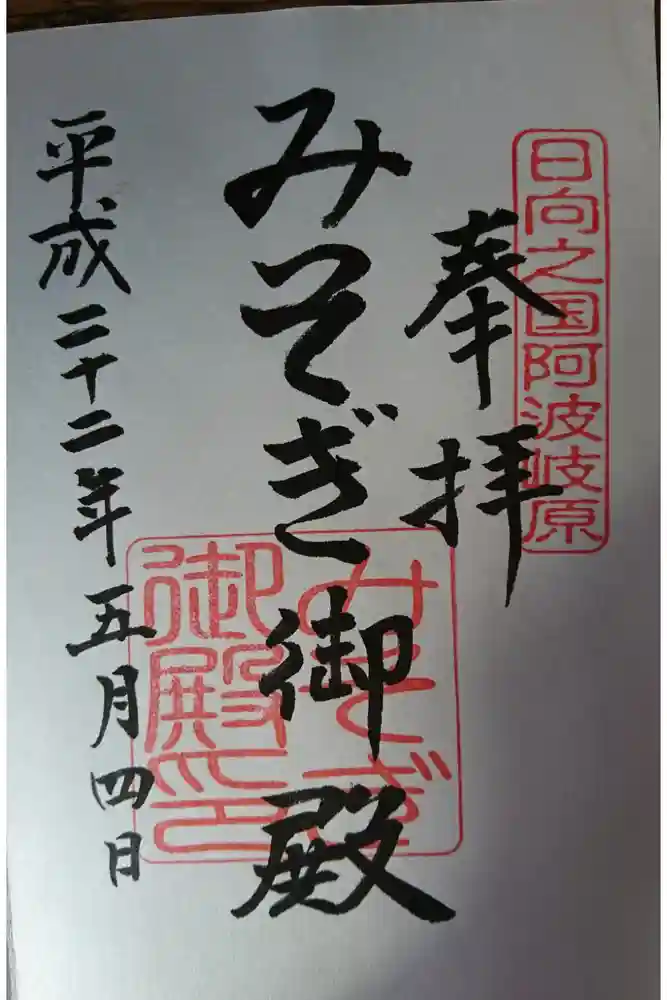 日向之国阿波岐原
奉拝
みそぎ御殿
みそぎ
御殿印
平成二十二年五月四日